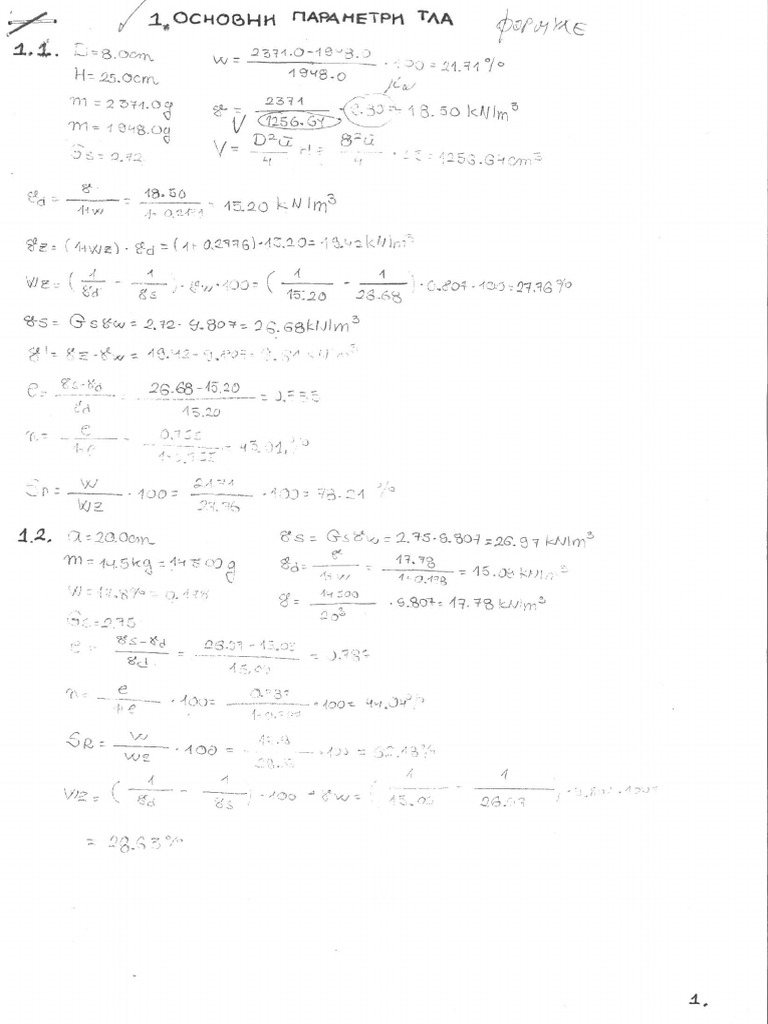 1. ОСНОВНИ ПАРАМЕТРИ ТЛА ФОРМУЛЕ
1.1. D=8.0cm w= 2371.0-1948.0 / 1948.0 · 100 = 21.71%
H=25.0cm γw
m=2371.0g γ= 2371 / 1256.64 · 9.80 = 18.50 kN/m³
m=1948.0g V
Gs=2.72 V= D²π/4 · H = 8²π/4 · 25 = 1256.64cm³
γd= γ / 1+w = 18.50 / 1+0.2171 = 15.20 kN/m³
γz=(1+wz)·γd=(1+0.2776)·15.20=19.42kN/m³
wz=( 1/γd - 1/γs )·γw·100=( 1/15.20 - 1/26.68 )·9.807·100=27.76%
γs=Gsγw=2.72·9.807=26.68kN/m³
γ'=γz-γw=19.42-9.807=9.61kN/m³
e= γs-γd / γd = 26.68-15.20 / 15.20 =
n= e / 1+e = = 43.01%
Sr= w / wz · 100 = 21.71 / 27.76 · 100 = 78.21 %
1.2. a=20.0cm γs=Gsγw=2.75·9.807=26.97 kN/m³
m=14.5kg=14500g γd= γ / 1+w = 17.78 / 1+0.178 = 15.09 kN/m³
w=17.8%=0.178 γ= 14500 / 20³ · 9.807=17.78 kN/m³
Gs=2.75
e= γs-γd / γd = 26.97-15.09 / 15.09 = 0.787
n= e / 1+e · 100 = 0.787 / 1+0.787 · 100 = 44.04%
SR= w / wz · 100 = · 100 = 62.18%
wz=( 1/γd - 1/γs )·100·γw=( 1/15.09 - 1/26.97 )·9.807·100
= 28.63%
1.